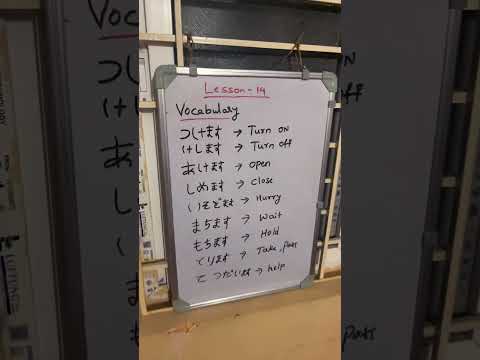 Lesson-14
Vocabulary
つけます → Turn on
けします → Turn off
あけます → open
しめます → close
いそぎます → Hurry
まちます → Wait
もちます → Hold
とります → Take, pass
て つだいます → help